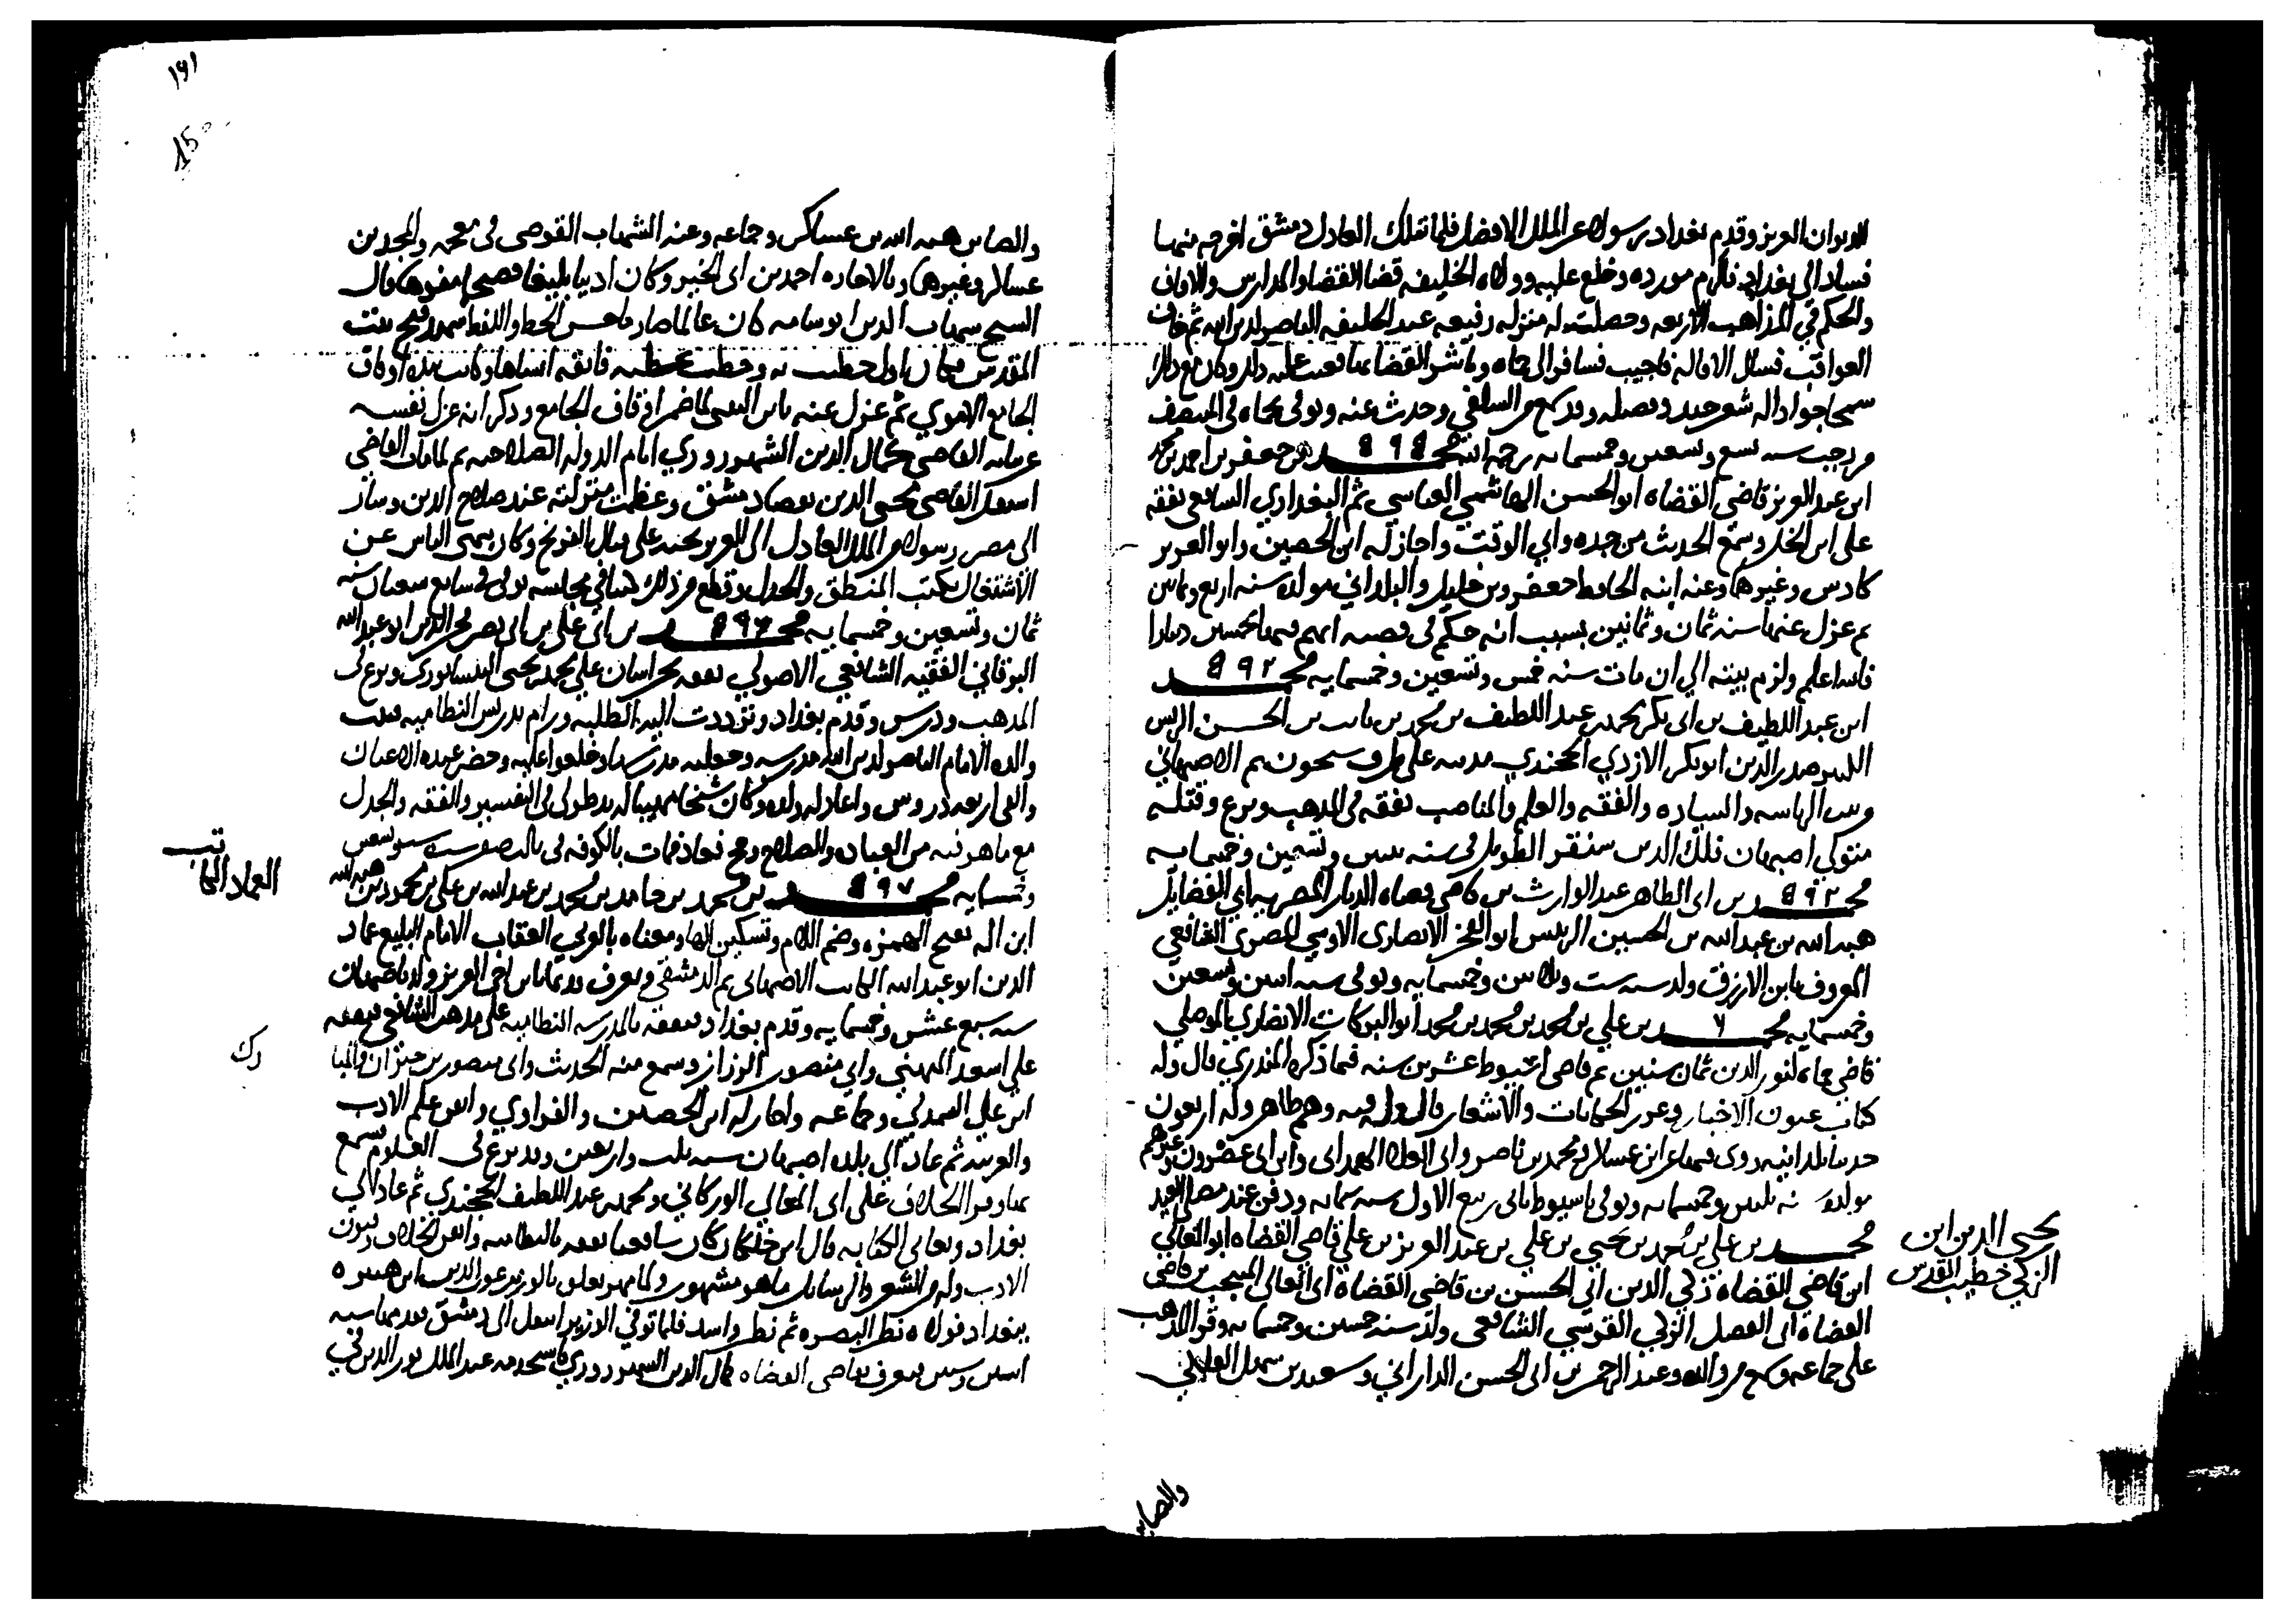 الديوان العزيز وقدم بغداد رسولا عن الملك الافضل فلما تملك العادل دمشق اخرجه منها
فسار الى بغداد فاكرم مورده وخلع عليه وولاه الخليفه قضا القضاه والمدارس والاوقاف
والحكم في المذاهب الاربعه وحصلت له منزله رفيعه عند الخليفه الناصر لدين الله ثم خاف
العواقب فسال الاقاله فاجيب فسافر الى حماه وباشر القضا بها فعيب عليه ذلك وكان مع ذلك
سمحا جوادا له شعر جيد وفضله وقد سمع من السلفي وحدث عنه وتوفي بحماه في المنتصف
من رجب سنه تسع وتسعين وخمسمايه رحمه الله محمد بن جعفر بن احمد بن محمد
ابن عبد العزيز قاضي القضاه ابو الحسن الهاشمي العباسي ثم البغدادي الشافعي تفقه
على ابن الخل وسمع الحديث من جده وابي الوقت واجاز له ابن الحصين وابو العز بن
كادس وغيرهما وعنه ابنه الحافظ جعفر وبن خليل والبلداني مولده سنه اربع
ثم عزل عنها سنه ثمان وثمانين بسبب انه حكم في قضيه اتهم فيها بخمسين دينارا
فالله اعلم ولزم بيته الي ان مات سنه خمس وتسعين وخمسمايه محمد
ابن عبد اللطيف بن ابي بكر محمد بن عبد اللطيف بن محمد بن ثابت بن الحسن الريس
الكبير صدر الدين ابو بكر الازدي الخجندي مدينه على طرف سيحون ثم الاصبهاني
من بيت الرياسه والسياده والفقه والعلم والمناصب تفقه في المذهب وبرع وقتله
متولي اصبهان فلك الدين سنقر الطويل في سنه اثنين وتسعين وخمسمايه
محمد بن ابي الطاهر عبد الوارث بن قاضي قضاه الديار المصريه ابي الفضايل
هبه الله بن عبد الله بن الحسين الريس ابو الفخر الانصاري الاوسي المصري الشافعي
المعروف بابن الازرق ولد سنه ست وثلاثين وخمسمايه وتوفي سنه اثنين وتسعين
وخمسمايه محمد بن علي بن محمد بن محمد بن محمد ابو البركات الانصاري الموصلي
قاضي حماه لنور الدين ثمان سنين ثم قاضي اسيوط عشرين سنه فيما ذكره المنذري قال وله
كتاب عيون الاخبار وغرر الحكايات والاشعار وله اربعون
حديثا بلدانيه روى فيها عن ابن عساكر ومحمد بن ناصر وابي العلا الهمداني وابن ابي عصرون وغيرهم
مولده سنه ثلثين وخمسمايه وتوفي باسيوط ثاني ربيع الاول سنه ستمايه ودفن عند مصلى العيد
محمد بن علي بن محمد بن يحيى بن علي بن عبد العزيز بن علي قاضي القضاه ابو المعالي
ابن قاضي القضاه زكي الدين ابي الحسن بن قاضي القضاه ابي المعالي المنتجب بن قاضي
القضاه ابي الفضل الزكي القرشي الشافعي ولد سنه خمسين وخمسمايه وقرا المذهب
على جماعه وسمع من والده وعبد الرحمن بن ابي الحسن الداراني وسعيد بن سهل الفلكي
محيي الدين ابن
الزكي خطيب القدس
والصاين
١٩١
والصاين هبه الله بن عساكر وجماعه وعنه الشهاب القوصي في معجمه والمجد بن
عساكر وغيرهما وبالاجازه احمد بن ابي الخير وكان اديبا بليغا فصيحا مفوها قال
الشيخ شهاب الدين ابو شامه كان عالما صارما حسن الخط واللفظ شهد فتح بيت
المقدس فكان اول خطيب به وخطب خطبه فائقه انشاها وكان بيده اوقاف
الجامع الاموي ثم عزل عنه وذكر انه عزل نفسه
كمال الدين الشهرزوري ايام الدوله الصلاحيه ثم لما مات القاضي
استقل القاضي محيى الدين بقضا دمشق وعظمت منزلته عند صلاح الدين وسار
الى مصر رسولا من الملك العادل الى العزيز يحثه على قتال الفرنج وكان ينهى الناس عن
الاشتغال بكتب المنطق والجدل وقطع من ذلك كتبا في مجلسه توفي في سابع شعبان سنه
ثمان وتسعين وخمسمايه محمد بن ابي علي بن ابي نصر فخر الدين ابو عبد الله
النوقاني الفقيه الشافعي الاصولي تفقه بخراسان على محمد بن يحيى النيسابوري وبرع في
المذهب ودرس وقدم بغداد وترددت اليه الطلبه ورام تدريس النظاميه فبنت
والده الامام الناصر لدين الله مدرسه وجعلته مدرسها وخلعوا عليه وحضر عنده الاعيان
والقى اربعه دروس واعاد له ولده وكان شيخا مهيبا له يد طولى في التفسير والفقه والجدل
مع ما هو فيه من العباده والصلاح وحج فعاد فمات بالكوفه في
وخمسمايه محمد بن محمد بن حامد بن محمد بن عبد الله بن علي بن محمود بن هبه الله
ابن اله بفتح الهمزه وضم اللام وتسكين الها ومعناه بالعربي العقاب الامام البليغ عماد
الدين ابو عبد الله الكاتب الاصبهاني ثم الدمشقي ويعرف قديما بابن اخي العزيز ولد باصبهان
سنه تسع عشر وخمسمايه وقدم بغداد فتفقه بالمدرسه النظاميه على مذهب الشافعي فتفقه
على اسعد الميهني وابي منصور الرزاز وسمع منه الحديث وابي منصور بن خيرون والمبارك
ابن علي السمذي وجماعه واجاز له ابن الحصين والفراوي واتقن علم الادب
والعربيه ثم عاد الي بلده اصبهان سنه ثلث واربعين وقد برع في العلوم فسمع
بها وقرا الخلاف على ابي المعالي الوركاني ومحمد بن عبد اللطيف الخجندي ثم عاد الي
بغداد وتعانى الكتابه قال ابن خلكان كان شافعيا تفقه بالنظاميه واتقن الخلاف وفنون
الادب وله من الشعر والرسايل ما هو مشهور ولما مهر تعلق بالوزير عون الدين ابن هبيره
ببغداد فولاه نظر البصره ثم نظر واسط فلما توفي الوزير انتقل الى دمشق
اثنين وستين فتعرف بقاضي القضاه كمال الدين الشهرزوري فاستخدمه عند الملك نور الدين في
العماد الكاتب